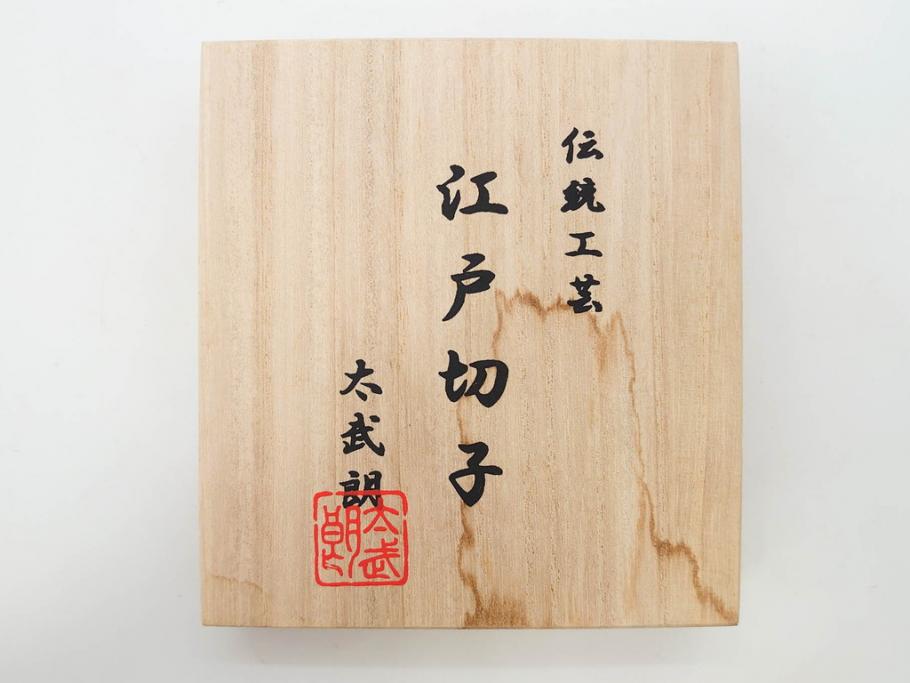 伝統工芸
江戸切子
太武朗
太武朗